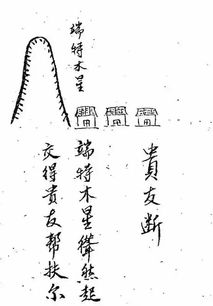 端特木星
貴友断
端特木星聳然起
交得貴友帮扶尔